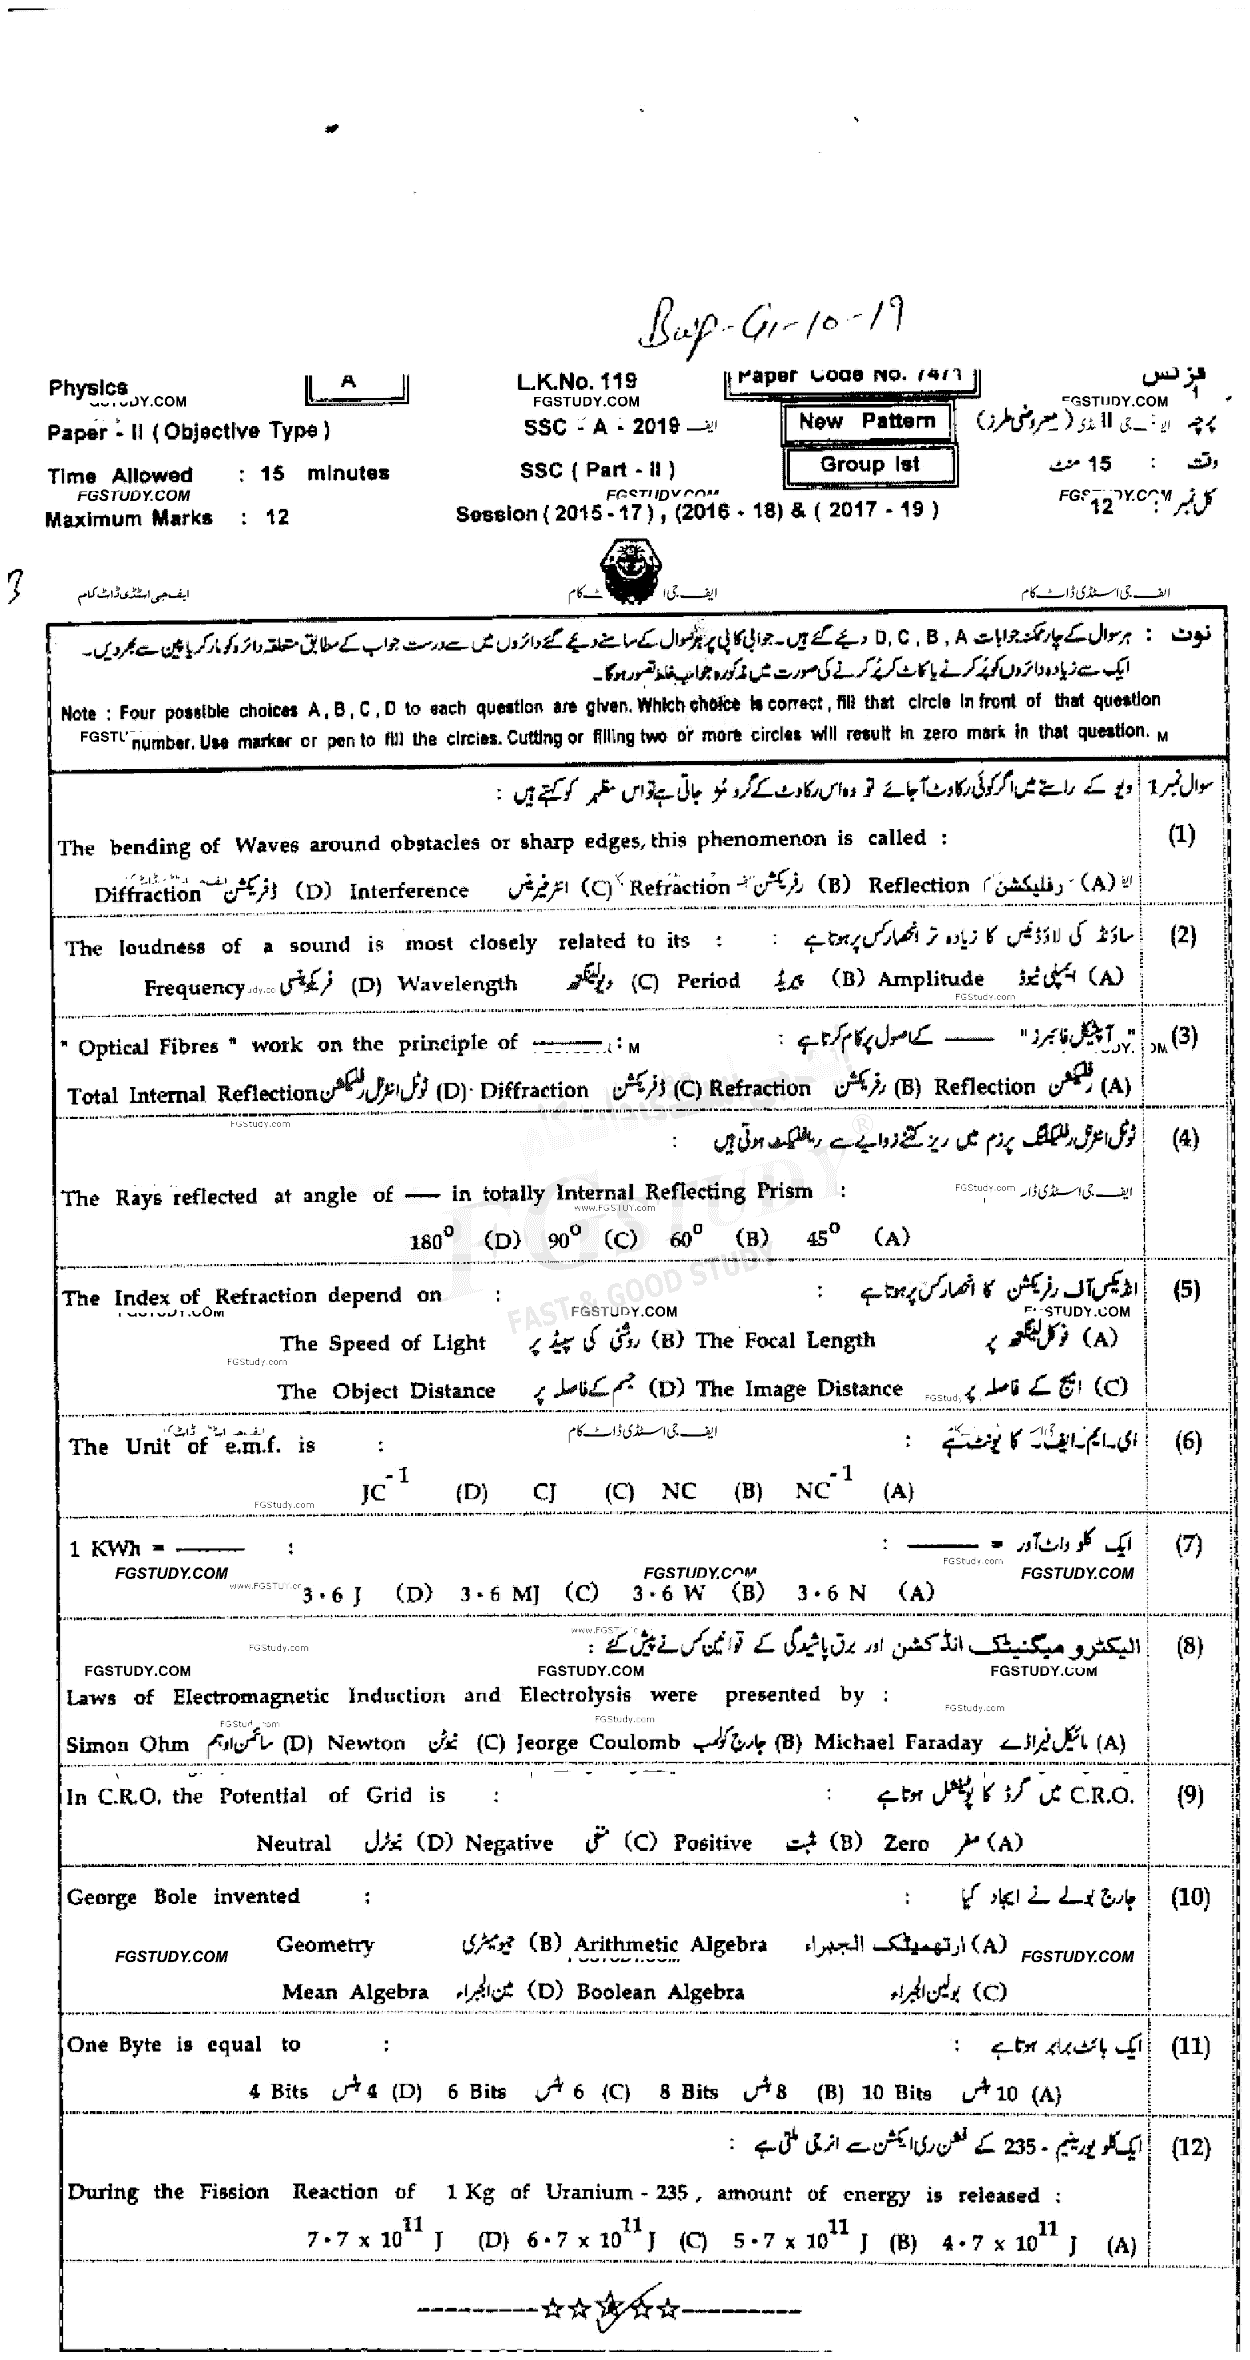 Bwp-G1-10-19
Physics A L.K.No. 119 Paper Code No. 7471 فزکس
FGSTUDY.COM FGSTUDY.COM
Paper - II ( Objective Type ) SSC - A - 2019 New Pattern پرچہ II ( معروضی طرز )
Time Allowed : 15 minutes SSC ( Part - II ) Group Ist وقت : 15 منٹ
FGSTUDY.COM FGSTUDY.COM FGSTUDY.COM
Maximum Marks : 12 Session ( 2015 - 17 ) , (2016 - 18) & ( 2017 - 19 ) کل نمبر : 12
3
ایف جی اسٹڈی ڈاٹ کام ایف جی ا ٹ کام ایف جی اسٹڈی ڈاٹ کام
نوٹ : ہر سوال کے چار ممکنہ جوابات D , C , B , A دیئے گئے ہیں۔ جوابی کاپی پر ہر سوال کے سامنے دیئے گئے دائروں میں سے درست جواب کے مطابق متعلقہ دائرہ کو مارکر یا پین سے بھر دیں۔
ایک سے زیادہ دائروں کو پُر کرنے یا کاٹ کر پُر کرنے کی صورت میں مذکورہ جواب غلط تصور ہوگا۔
Note : Four possible choices A , B , C , D to each question are given. Which choice is correct , fill that circle in front of that question
number. Use marker or pen to fill the circles. Cutting or filling two or more circles will result in zero mark in that question. M
سوال نمبر 1 ویو کے راستے میں اگر کوئی رکاوٹ آجائے تو وہ اس رکاوٹ کے گرد مُڑ جاتی ہے تو اس مظہر کو کہتے ہیں :
The bending of Waves around obstacles or sharp edges, this phenomenon is called : (1)
Diffraction ڈفریکشن (D) Interference انٹرفیرینس (C) Refraction رفریکشن (B) Reflection رفلیکشن (A)
The loudness of a sound is most closely related to its : : ساؤنڈ کی لاؤڈنیس کا زیادہ تر انحصار کس پر ہوتا ہے (2)
Frequency فریکوئنسی (D) Wavelength ویولینگتھ (C) Period پیریڈ (B) Amplitude ایمپلی ٹیوڈ (A)
FGStudy.com
" Optical Fibres " work on the principle of ——— : M : "آپٹیکل فائبرز" —— کے اصول پر کام کرتا ہے (3)
Total Internal Reflection ٹوٹل انٹرنل رفلیکشن (D) Diffraction ڈفریکشن (C) Refraction رفریکشن (B) Reflection رفلیکشن (A)
FGStudy.com
ٹوٹل انٹرنل رفلیکٹنگ پرزم میں ریز کتنے زاویے سے رفلیکٹ ہوتی ہیں : (4)
The Rays reflected at angle of —— in totally Internal Reflecting Prism : FGStudy.com
www.FGSTUY.com
180⁰ (D) 90⁰ (C) 60⁰ (B) 45⁰ (A)
FGSTUDY ®
FAST & GOOD STUDY
The Index of Refraction depend on : : انڈیکس آف رفریکشن کا انحصار کس پر ہوتا ہے (5)
FGSTUDY.COM FGSTUDY.COM FGSTUDY.COM
The Speed of Light روشنی کی سپیڈ پر (B) The Focal Length فوکل لینگتھ پر (A)
FGStudy.com
The Object Distance جسم کے فاصلہ پر (D) The Image Distance امیج کے فاصلہ پر (C)
ایف جی اسٹڈی ڈاٹ کام
The Unit of e.m.f. is : : ای۔ایم۔ایف۔ کا یونٹ ہے (6)
JC⁻¹ (D) CJ (C) NC (B) NC⁻¹ (A)
FGStudy.com
1 KWh = ——— : : ——— = ایک کلو واٹ آور (7)
FGSTUDY.COM FGSTUDY.COM FGStudy.com FGSTUDY.COM
3·6 J (D) 3·6 MJ (C) 3·6 W (B) 3·6 N (A)
الیکٹرو میگنیٹک انڈکشن اور برق پاشیدگی کے قوانین کس نے پیش کئے : (8)
FGStudy.com
FGSTUDY.COM FGSTUDY.COM FGSTUDY.COM
Laws of Electromagnetic Induction and Electrolysis were presented by :
FGStudy.com FGStudy.com FGStudy.com
Simon Ohm سائمن اوہم (D) Newton نیوٹن (C) Jeorge Coulomb جارج کولمب (B) Michael Faraday مائیکل فیراڈے (A)
In C.R.O. the Potential of Grid is : : C.R.O. میں گرڈ کا پوٹینشل ہوتا ہے (9)
Neutral نیوٹرل (D) Negative منفی (C) Positive مثبت (B) Zero صفر (A)
George Bole invented : : جارج بولے نے ایجاد کیا (10)
Geometry جیومیٹری (B) Arithmetic Algebra ارتھمیٹک الجبراء (A)
FGSTUDY.COM FGSTUDY.COM FGSTUDY.COM
Mean Algebra مین الجبراء (D) Boolean Algebra بولین الجبراء (C)
One Byte is equal to : : ایک بائٹ برابر ہوتا ہے (11)
4 Bits 4 بٹس (D) 6 Bits 6 بٹس (C) 8 Bits 8 بٹس (B) 10 Bits 10 بٹس (A)
ایک کلو یورینیم - 235 کے فشن ری ایکشن سے انرجی ملتی ہے : (12)
During the Fission Reaction of 1 Kg of Uranium - 235 , amount of energy is released :
7·7 x 10¹¹ J (D) 6·7 x 10¹¹ J (C) 5·7 x 10¹¹ J (B) 4·7 x 10¹¹ J (A)